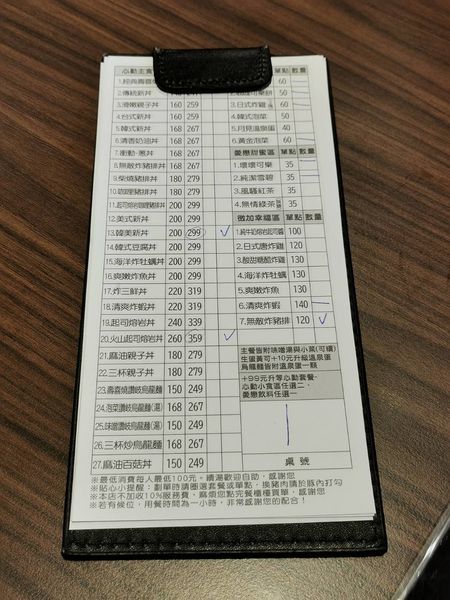 心動主食 單點 數量
1.經典壽喜 60
2.傳統新丼 50
3.滑嫩親子丼 160 259 3.日式炸雞 60
4.台式新丼 160 259 4.韓式泡菜 50
5.韓式新丼 168 267 5.月見溫泉蛋 40
6.清香奶油丼 168 267 6.黃金泡菜 60
7.衝動蔥丼 168 267 愛戀甜蜜區 單點 數量
8.無敵炸豬排丼 168 267 1.壞壞可樂 35
9.柴燒豬排丼 180 279 2.純潔雪碧 35
10.咖哩豬排丼 180 279 3.風騷紅茶 35
11.起司熔岩咖哩豬排丼 200 299 4.無情綠茶 35
12.美式新丼 200 299 微加幸福區 單點 數量
13.韓美新丼 200 299 ✓ 1.純牛奶熔岩起司醬 100
14.韓式豆腐丼 200 299 2.日式唐炸雞 120
15.海洋炸牡蠣丼 200 299 3.酸甜糖醋炸雞 130
16.爽嫩炸魚丼 200 299 4.海洋炸牡蠣 130
17.炸三鮮丼 220 319 5.爽嫩炸魚 130
18.清爽炸蝦丼 220 319 6.清爽炸蝦 140
19.起司熔岩丼 240 339 7.無敵炸豬排 120 ✓
20.火山起司熔岩丼 260 359 ✓
21.麻油親子丼 180 279
22.三杯親子丼 180 279
23.壽喜燒讚岐烏龍麵 150 249
24.泡菜讚岐烏龍麵(湯) 168 267
25.味噌讚岐烏龍麵(湯) 150 249
26.三杯炒烏龍麵 168 267
27.麻油百菇丼 150 249
主餐皆附味噌湯與小菜(可續)
生蛋黃可+10元升級溫泉蛋
烏龍麵皆附溫泉蛋一顆
+99元升等心動套餐-
心動小食區任選二,
愛戀飲料任選一
桌號
※最低消費每人最低100元。續湯歡迎自助,感謝您
※貼心小提醒:劃單時請圈選套餐或單點,換豬肉請於豚內打勾
※本店不加收10%服務費,麻煩您點完餐櫃檯買單,感謝您
※若有候位,用餐時間為一小時,非常感謝您的配合!